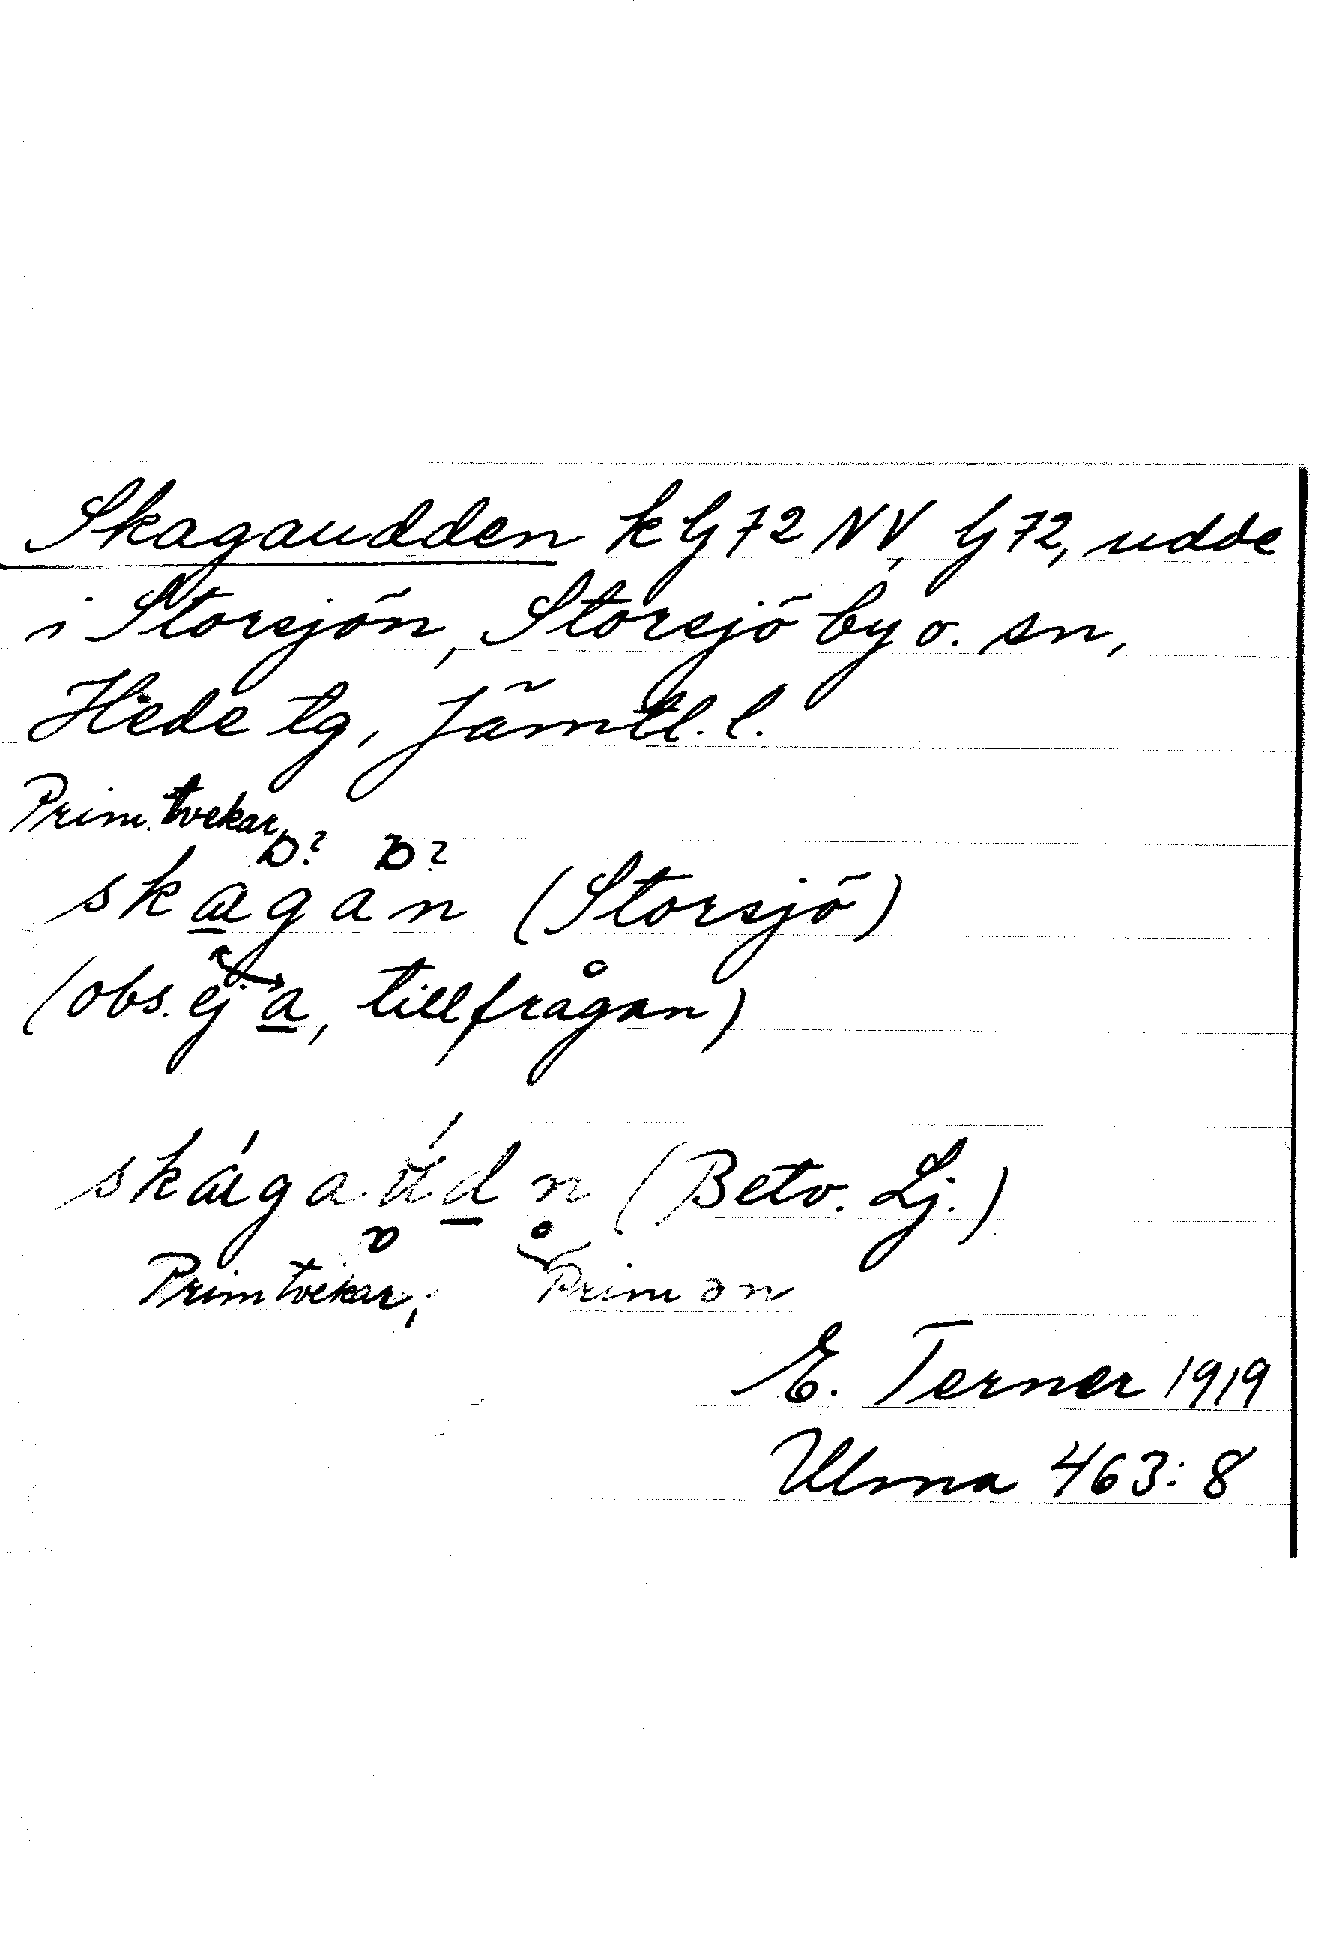 Skagaudden k G 72 NV, G 72, udde
i Storsjön, Storsjö by o. sn,
Hede tg, Jämtl. l.
Prim. tvekar
skagan (Storsjö)
(obs. ej a, tillfrågan)
skágaúdn (Betv. Lj.)
Prim tvekar, Prim ən
E. Terner 1919
Ulma 463:8